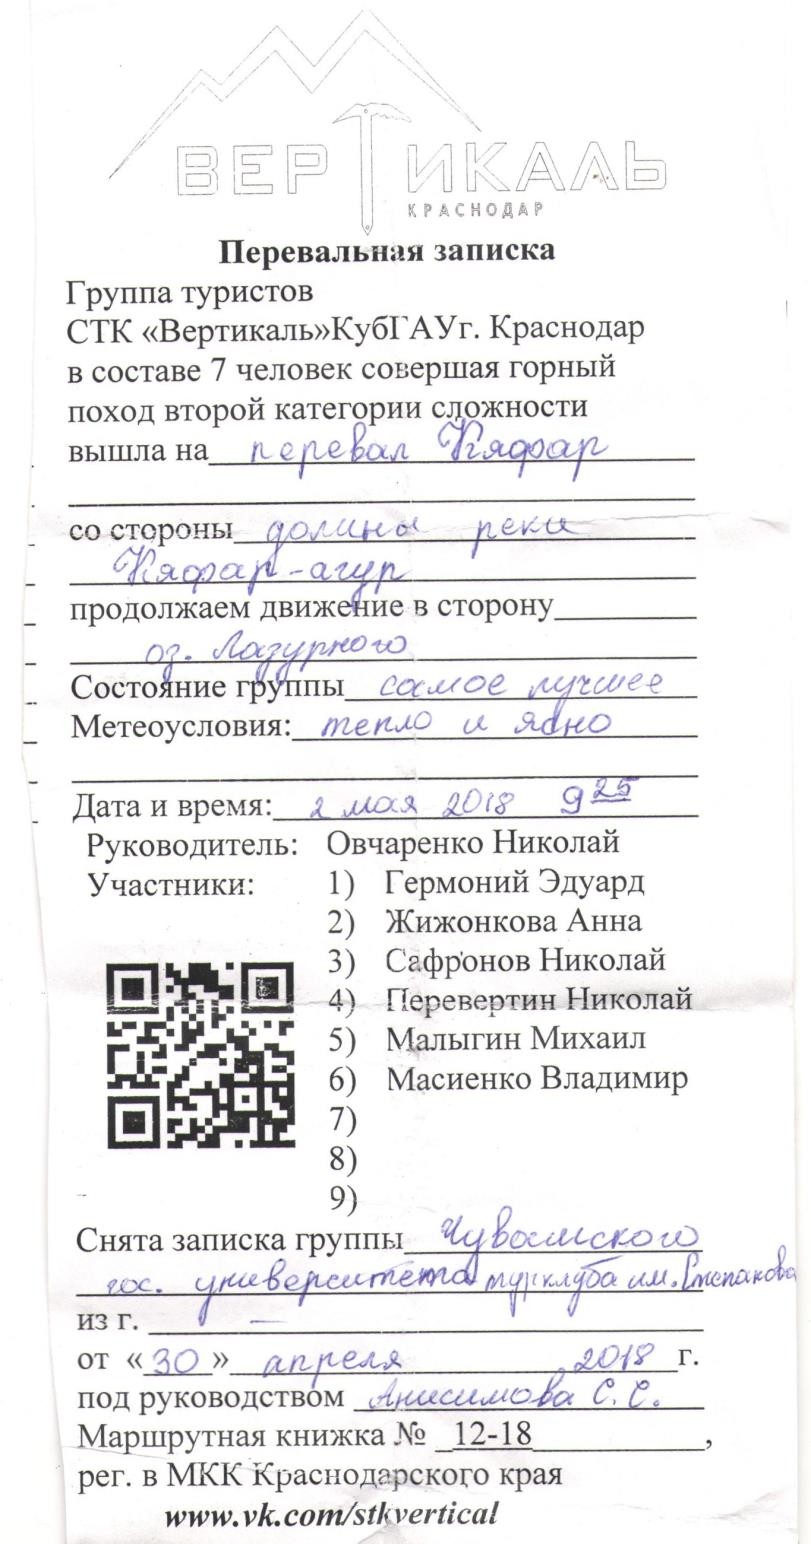 ВЕРТИКАЛЬ
КРАСНОДАР
Перевальная записка
Группа туристов
СТК «Вертикаль»КубГАУг. Краснодар
в составе 7 человек совершая горный
поход второй категории сложности
вышла на перевал Кяфар
со стороны долины реки
Кяфар-агур
продолжаем движение в сторону
оз. Лазурного
Состояние группы самое лучшее
Метеоусловия: тепло и ясно
Дата и время: 2 мая 2018 9 25
Руководитель: Овчаренко Николай
Участники: 1) Гермоний Эдуард
2) Жижонкова Анна
3) Сафронов Николай
4) Перевертин Николай
5) Малыгин Михаил
6) Масиенко Владимир
7)
8)
9)
Снята записка группы Чувашского
гос. университета турклуба им. Степанова
из г. —
от «30» апреля 2018 г.
под руководством Анисимова С. С.
Маршрутная книжка № 12-18,
рег. в МКК Краснодарского края
www.vk.com/stkvertical